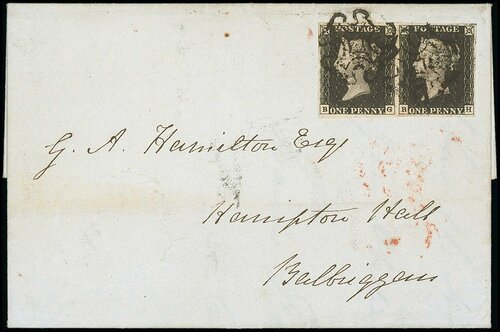 POSTAGE POSTAGE
B G B H
ONE PENNY ONE PENNY
G. A. Hamilton Esqr
Hampton Hall
Balbriggan